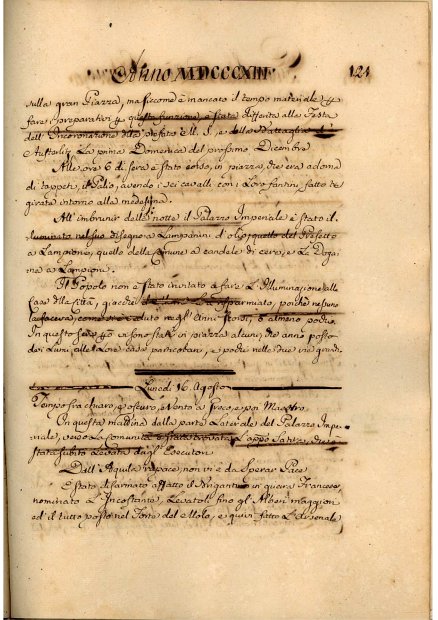 Anno MDCCCXIII 121
sulla gran Piazza, ma siccome è mancato il tempo materiale p
fare i preparativi p questa funzione, è stata differita alla Festa
dell' Incoronazione della prefata M. S. e della Battaglia d'
Austerliz la prima Domenica del prossimo Dicembre
Alle ore 6 di sera è stato corso, in piazza, che era adorna
di tappeti, il Palio, avendo i sei cavalli con i loro fantini, fatto tre
girate intorno alla medesima.
All' imbrunir della notte il Palazzo Imperiale è stato il-
luminato nel suo disegno a Lampanini d'olio, quello del Prefetto
a Lampioni, quello della Comune a candele di cera, e la Doga-
na a Lampioni.
Il Popolo non è stato invitato a fare l'illuminazione alle
case della Città, giacchè risparmiato, poichè nessuno
come si è veduto negl' Anni scorsi, o almeno pochi
In questa sera vi sono stati in piazza alcuni che anno posto
dei Lumi alle loro case particolari, e pochi nelle due vie grandi.
Lunedì 16. Agosto
Tempo fra chiaro, e oscuro, e Vento a Greco, e poi Maestro.
In questa mattina dalla parte Laterale del Palazzo Impe-
riale, verso la Comunità è stata trovata l'app. Satira, che è
stata subito levata dagl' Esecutori
Dall' Aquila rapace, non vi è da sperar Pace
È stato disarmato affatto il Brigantino in guerra Francese,
nominato L'Incostante, levatoli fino gl' Alberi maggiori
ed il tutto posto nel Forte del Molo, e quivi fatto l'Arsenale